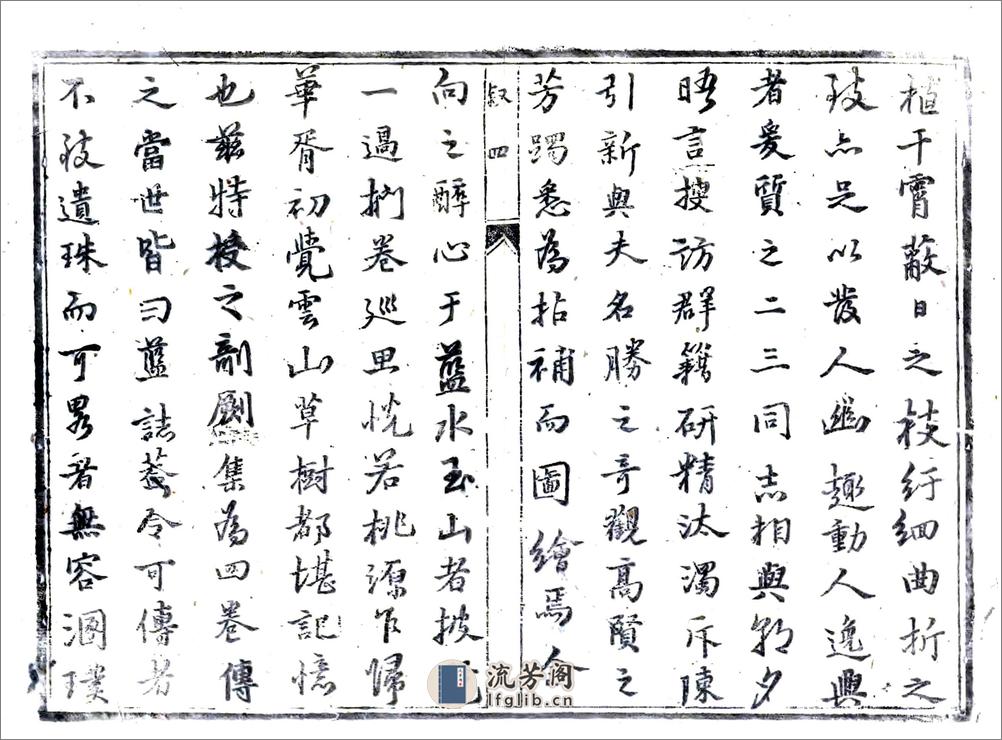 植干霄蔽日之枝紆細曲折之
致亦足以發人幽趣動人逸興
者爰質之二三同志相與朝夕
晤言搜訪群籍研精汰濁斥陳
引新與夫名勝之奇觀高賢之
芳躅悉為拈補而圖繪焉令
叙 四
向之醉心于藍水玉山者披
一過掩卷延思恍若桃源乍歸
華胥初覺雲山草樹都堪記憶
也茲特授之剞劂集為四卷傳
之當世皆曰藍誌蒼令可傳者
不致遺珠而可畧者無容溷璞
流芳阁
lfglib.cn